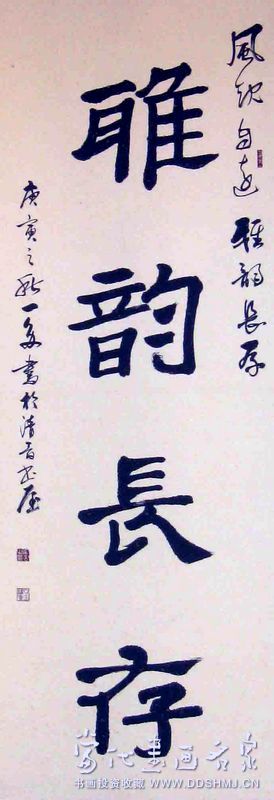 風规自遠 雅韵長存
雅韵長存
庚寅之秋一 書於清音书屋
当代书画名家
书画投资收藏 WWW.DDSHMJ.CN